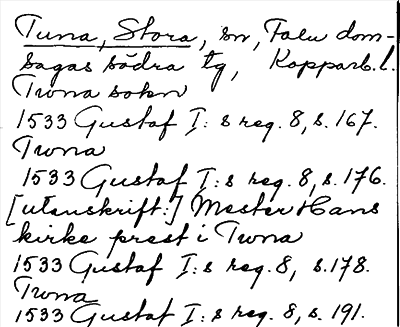 Tuna, Stora, sn, Falu dom-
sagas södra tg, Kopparb. l.
Twna sokn
1533 Gustaf I:s reg. 8, s. 167.
Twna
1533 Gustaf I:s reg. 8, s. 176.
[utanskrift:] Mester Hans
kirke prest i Twna
1533 Gustaf I:s reg. 8, s. 178.
Twna
1533 Gustaf I:s reg. 8, s. 191.